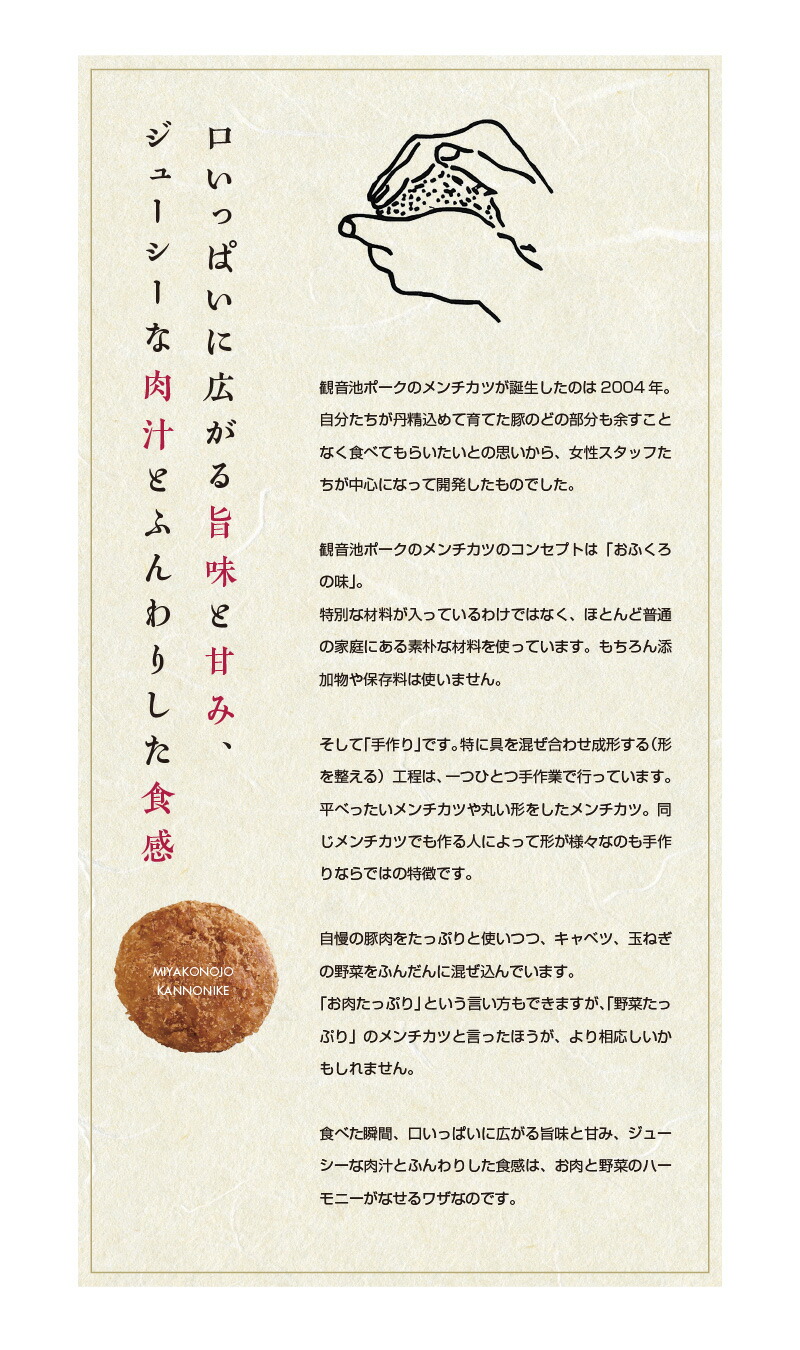 口いっぱいに広がる旨味と甘み、
ジューシーな肉汁とふんわりした食感
観音池ポークのメンチカツが誕生したのは 2004 年。
自分たちが丹精込めて育てた豚のどの部分も余すこと
なく食べてもらいたいとの思いから、女性スタッフた
ちが中心になって開発したものでした。
観音池ポークのメンチカツのコンセプトは「おふくろ
の味」。
特別な材料が入っているわけではなく、ほとんど普通
の家庭にある素朴な材料を使っています。もちろん添
加物や保存料は使いません。
そして「手作り」です。特に具を混ぜ合わせ成形する(形
を整える) 工程は、一つひとつ手作業で行っています。
平べったいメンチカツや丸い形をしたメンチカツ。同
じメンチカツでも作る人によって形が様々なのも手作
りならではの特徴です。
自慢の豚肉をたっぷりと使いつつ、キャベツ、玉ねぎ
の野菜をふんだんに混ぜ込んでいます。
「お肉たっぷり」という言い方もできますが、「野菜たっ
ぷり」のメンチカツと言ったほうが、より相応しいか
もしれません。
食べた瞬間、口いっぱいに広がる旨味と甘み、ジュー
シーな肉汁とふんわりした食感は、お肉と野菜のハー
モニーがなせるワザなのです。
MIYAKONOJO
KANNONIKE